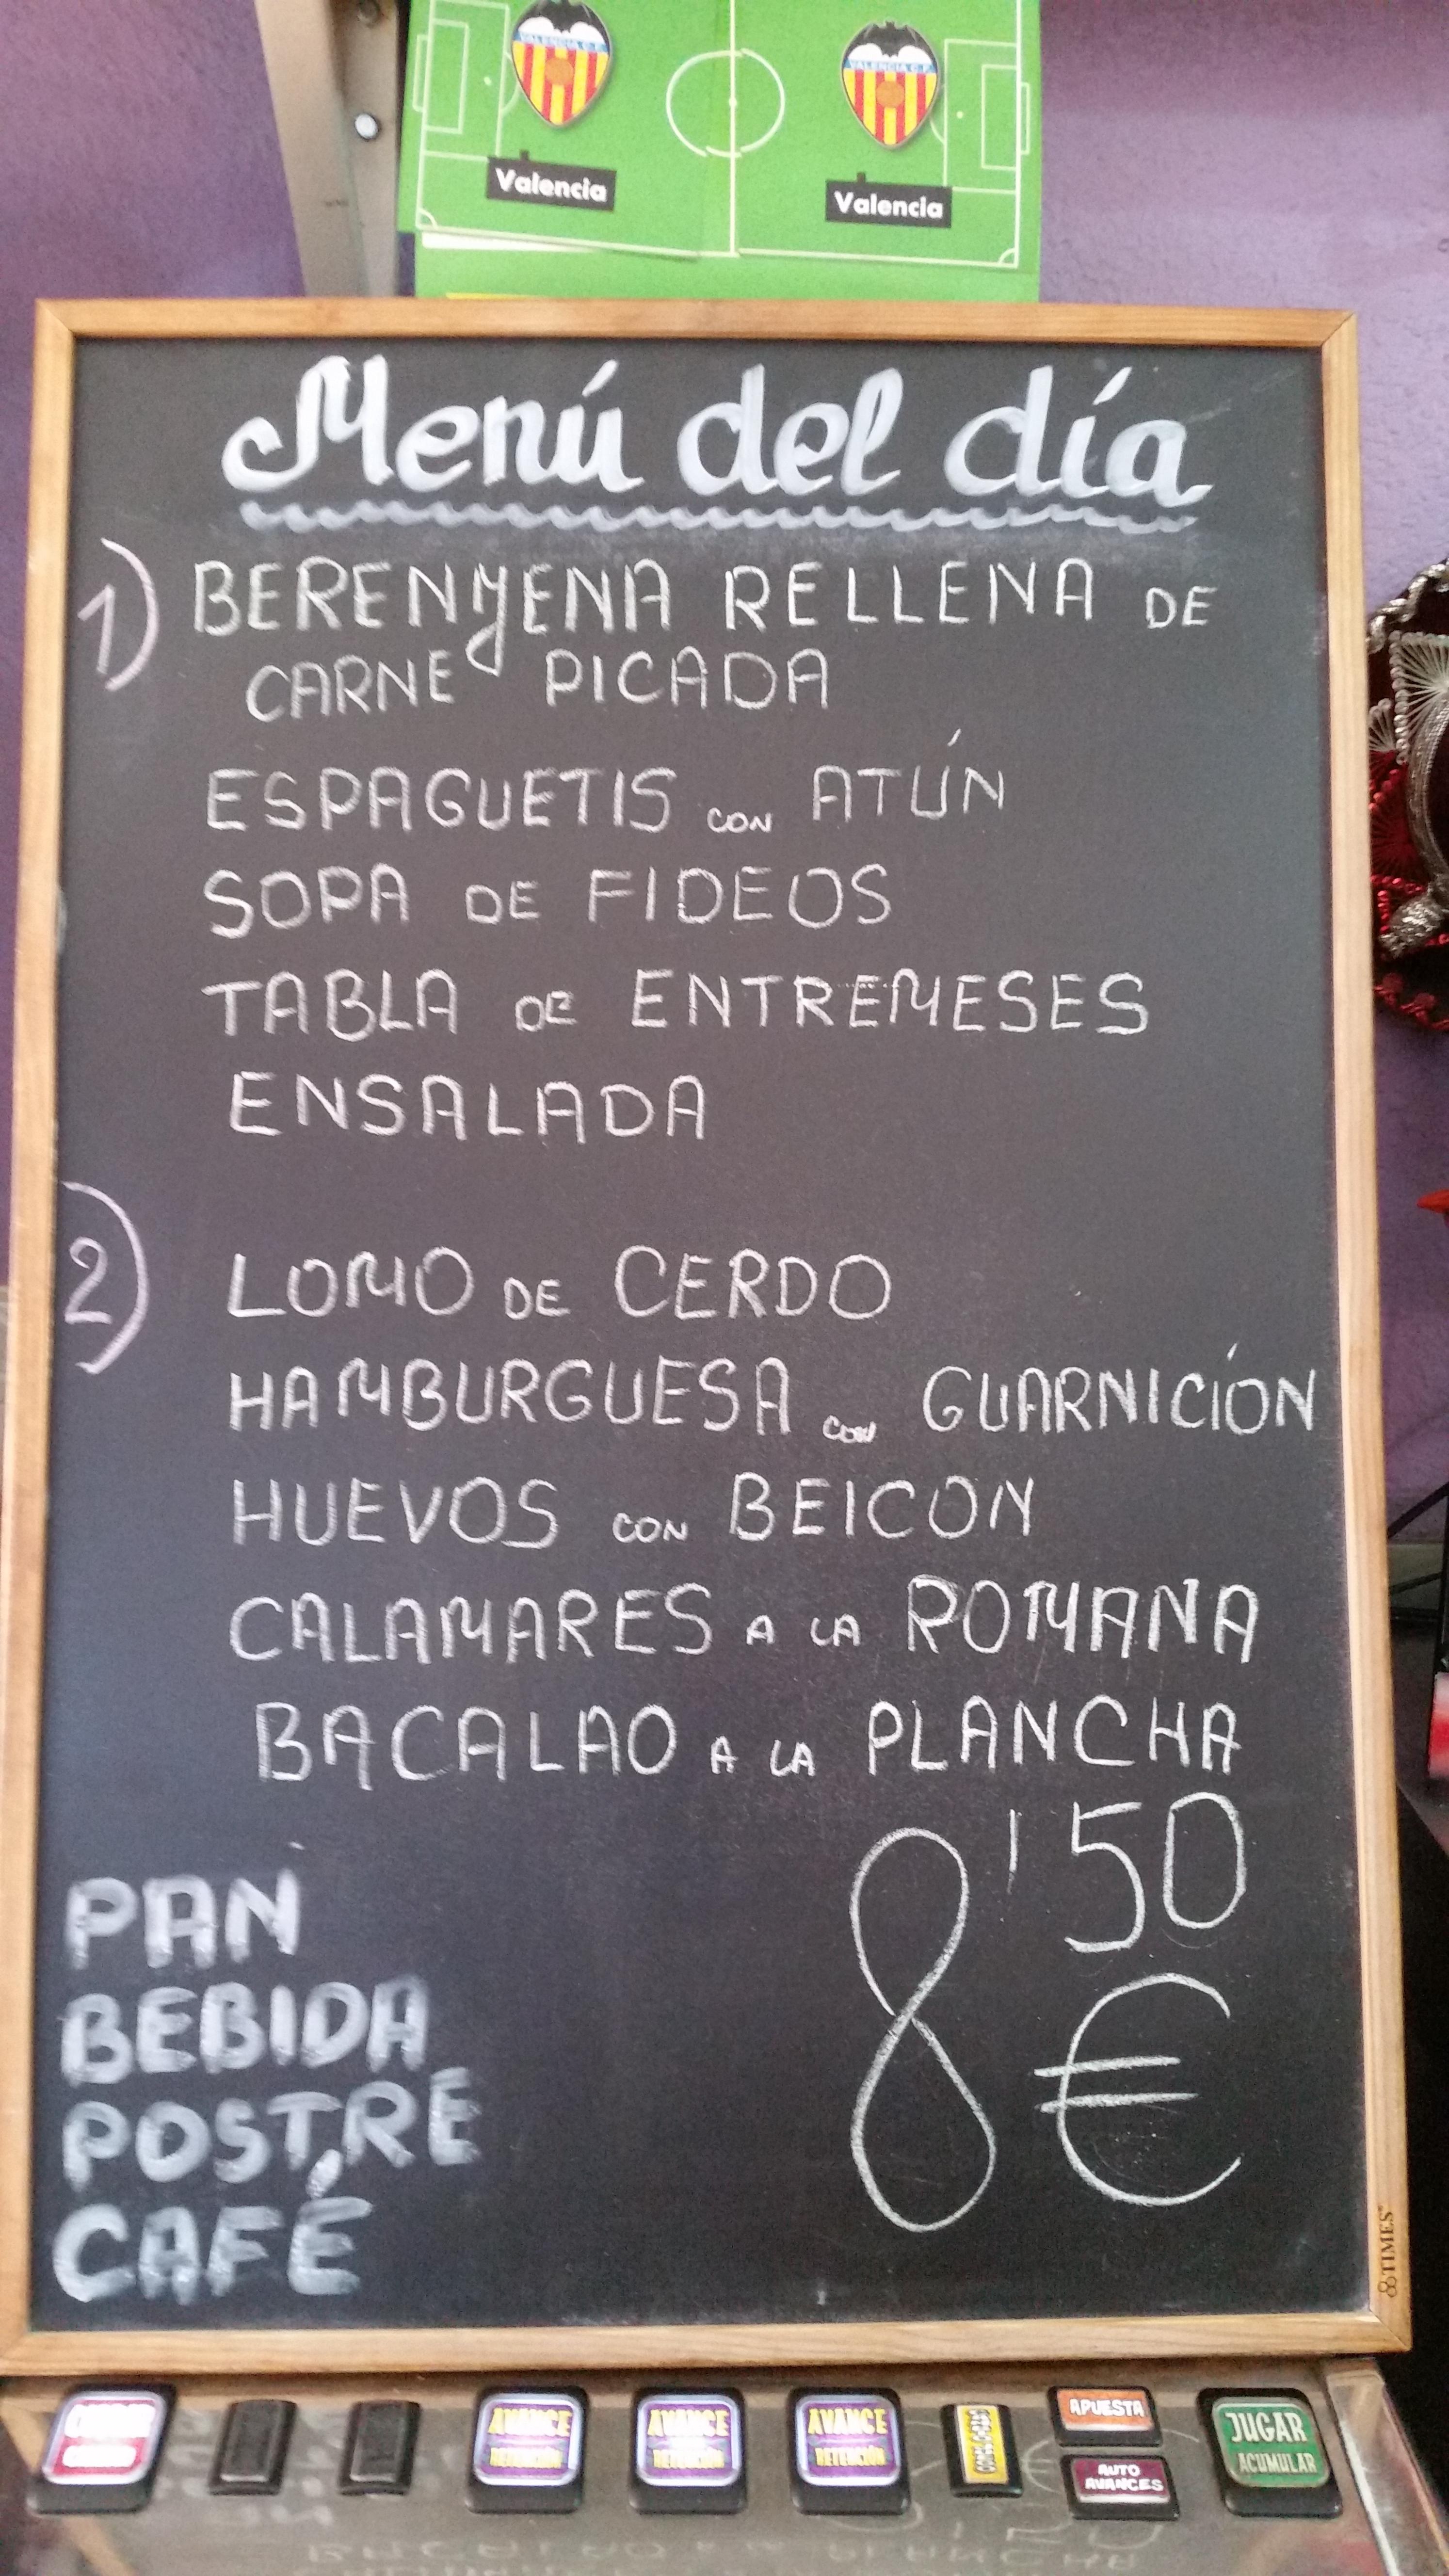 VALENCIA C.F.
VALENCIA C.F.
Valencia
Valencia
Menú del día
1) BERENYENA RELLENA DE
CARNE PICADA
ESPAGUETIS CON ATÚN
SOPA DE FIDEOS
TABLA DE ENTREMESES
ENSALADA
2) LOMO DE CERDO
HAMBURGUESA CON GUARNICIÓN
HUEVOS CON BEICON
CALAMARES A LA ROMANA
BACALAO A LA PLANCHA
8'50
€
PAN
BEBIDA
POSTRE
CAFÉ
TIMES
AVANCE
RETENCIÓN
AVANCE
RETENCIÓN
AVANCE
RETENCIÓN
APUESTA
AUTO
AVANCES
JUGAR
ACUMULAR